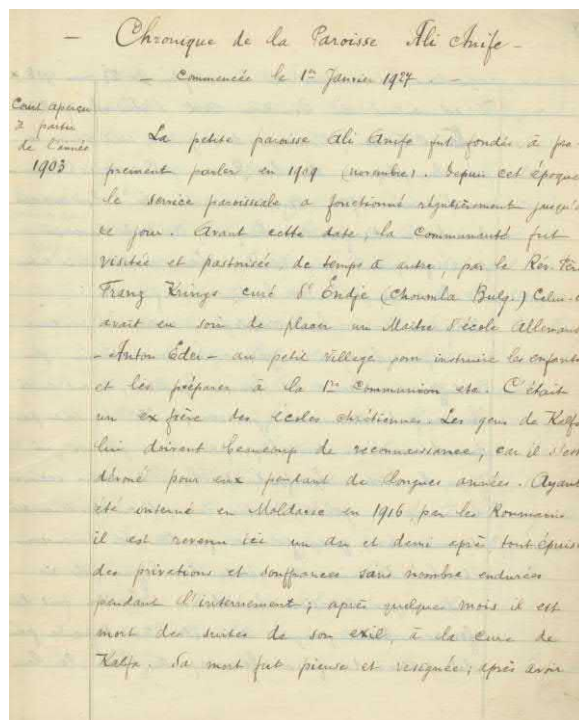 - Chronique de la Paroisse Ali Anife -
- Commencée le 1er Janvier 1927 -
Court aperçu
à partir
de l'année
1903
La petite paroisse Ali Anife fut fondée à pro-
prement parler, en 1909 (novembre). Depuis cet époque
le service paroissiale a fonctionné régulièrement jusqu'à
ce jour. Avant cette date, la Communauté fut
visitée et pastorisée, de temps à autre, par le Rév. Père
Franz Krings curé d'Endje (Choumla Bulg.) Celui-c
avait eu soin de placer un Maître d'école Allemand
- Anton Eder - au petit village pour instruire les enfants
et les préparer à la 1re Communion etc. C'était
un ex frère des écoles chrétiennes. Les gens de Kalfa
lui doivent beaucoup de reconnaissance, car il s'est
dévoué pour eux pendant de longues années. Ayant
été interné en Moldavie en 1916, par les Roumains
il est revenu ici un an et demi après tout épuisé
des privations et souffrances sans nombre endurées
pendant l'internement; après quelques mois il est
mort des suites de son exil, à la cure de
Kalfa. Sa mort fut pieuse et resignée; après avoir